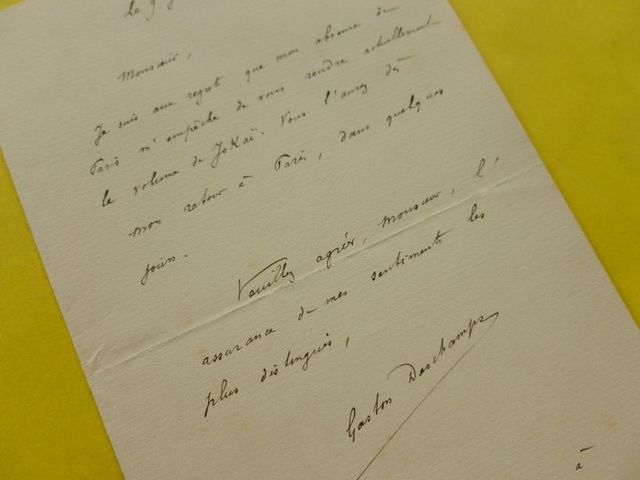 Le 9
Monsieur,
Je suis aux regrets que mon absence de
Paris m'empêche de vous rendre actuellement
le volume de Jokaï. Vous l'aurez dès
mon retour à Paris, dans quelques
jours.
Veuillez agréer, Monsieur, l'
assurance de mes sentiments les
plus distingués,
Gaston Deschamps
à